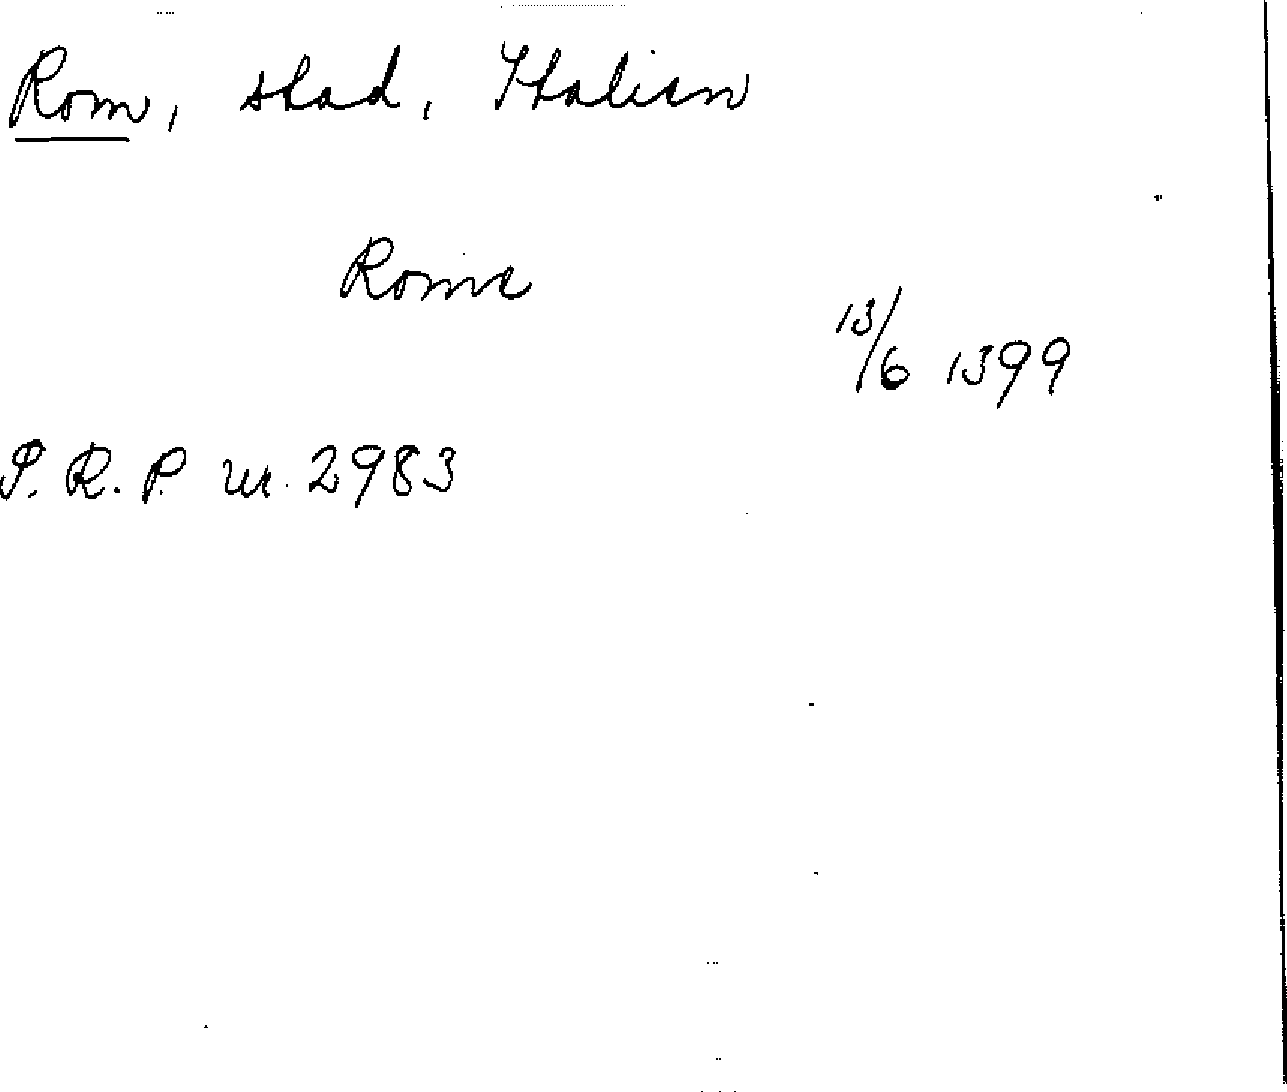 Rom, stad, Italien
Rome
13/6 1399
S. R. P. nr. 2983